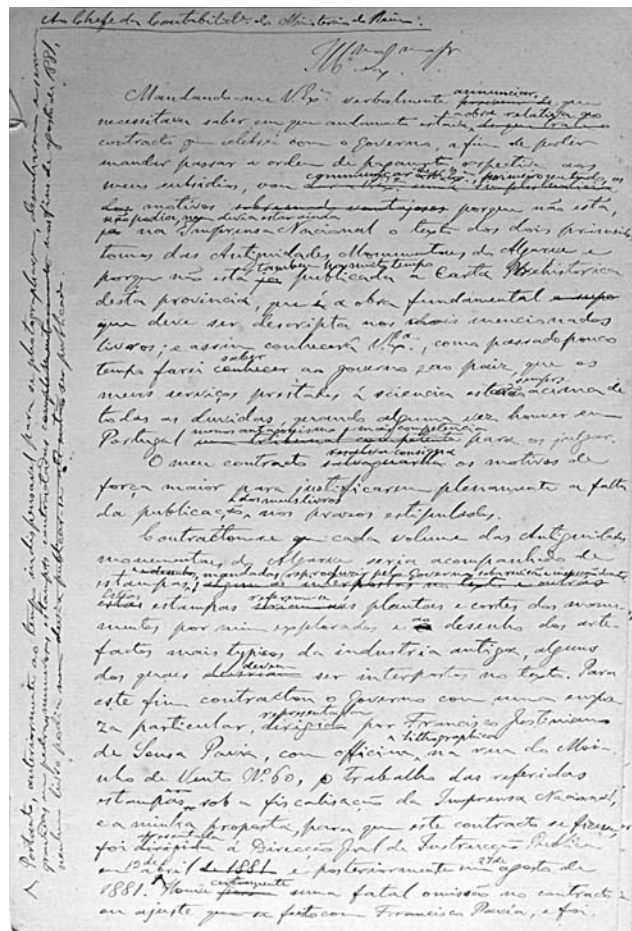 Ao Chefe da Contabilide. do Ministerio do Reino.
Mandando-me V. Exa. verbalmente annunciar que
necessitava saber em que andamento estava a obra relativa ao
contracto que celebrei com o Governo, a fim de poder
mandar passar a ordem de pagamto. respectiva aos
meus subsidios, vou communicar
os motivos porque não está,
não podia, nem devia estar ainda
na Imprensa Nacional o texto dos dois primeiros
tomos das Antiguidades Monumentaes do Algarve e
porque não está tambem ha muito tempo publicada a Carta Prehistorica
desta provincia, que é a obra fundamental
que deve ser descripta nos mencionados
livros; e assim conhecerá V. Exa., como passado pouco
tempo farei saber ao governo e ao paiz, que os
meus serviços prestados á sciencia estão sempre acima de
todas as duvidas, quando alguma vez houver em
Portugal menos antagonismo e mais competencia para os julgar.
O meu contracto os motivos de
força maior para justificarem plenamente a falta
da publicação dos meus livros nos prazos estipulados.
Contractou-se que cada volume das Antiguidades
monumentaes do Algarve seria acompanhado de
estampas, mandados reproduzir pelo Governo
estas estampas plantas e cortes dos monu-
mentos por mim explorados e ao desenho dos arte-
factos mais typicos da industria antiga, alguns
dos quaes deviam ser interpostos no texto. Para
este fim contractou o Governo com uma empre-
za particular, representada por Francisco Justiniano
de Sousa Pavia, com officina lithographica na rua do Moi-
nho de Vento No. 60, o trabalho das referidas
estampas sob a fiscalisação da Imprensa Nacional,
e a minha proposta, para que este contracto se fizesse,
foi apresentada á Direcção Geral de Instrucção Publica
em 19 de abril de 1881 e posteriormente em 27 de agosto de
1881. Houve certamente uma fatal omissão no contracto
ou ajuste que se fez com Francisco Pavia, e foi
Portanto, anteriormente ao tempo indispensavel para se photographarem, desenharem e serem
gravadas em pedra numerosas estampas contractadas no fim de agosto de 1881,
nenhum livro podia nem devia publicar-se